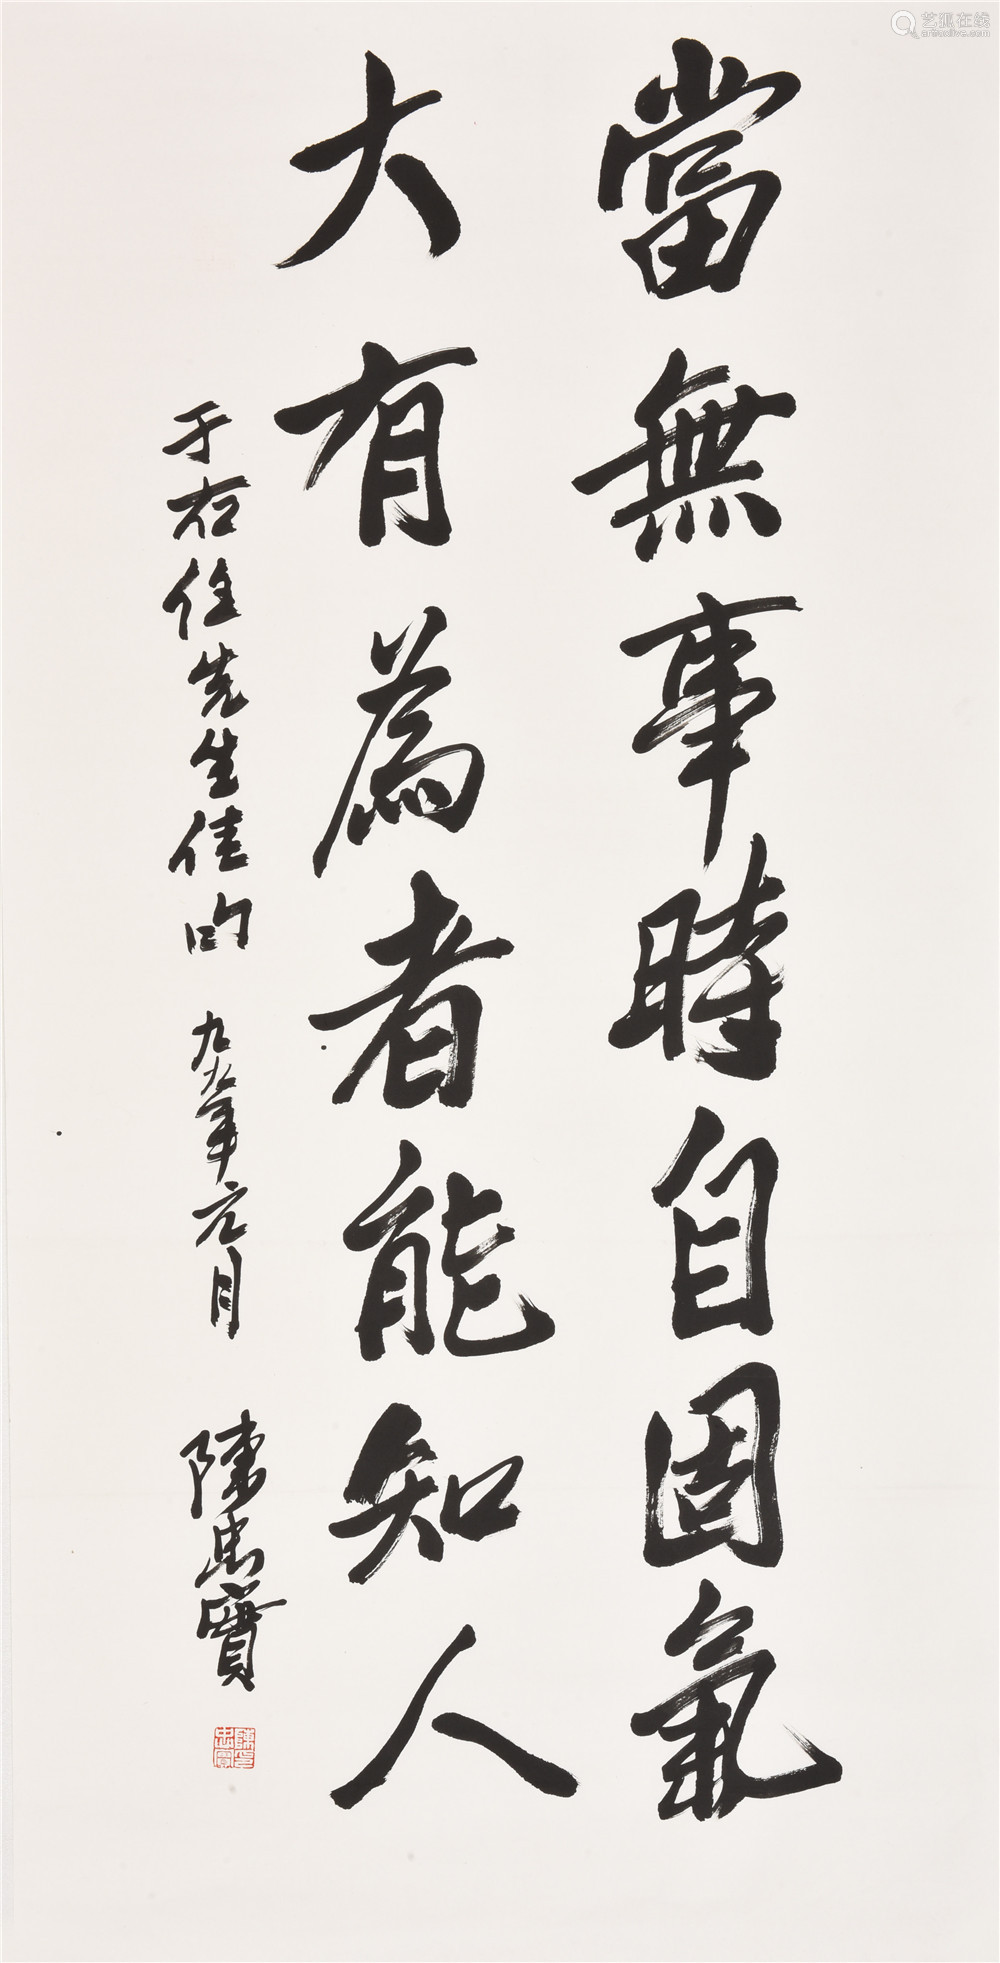 當無事時自固氣
大有為者能知人
于右任先生佳句 九九年元月 陳忠實
陳忠實印
艺狐在线
artfoxlive.com